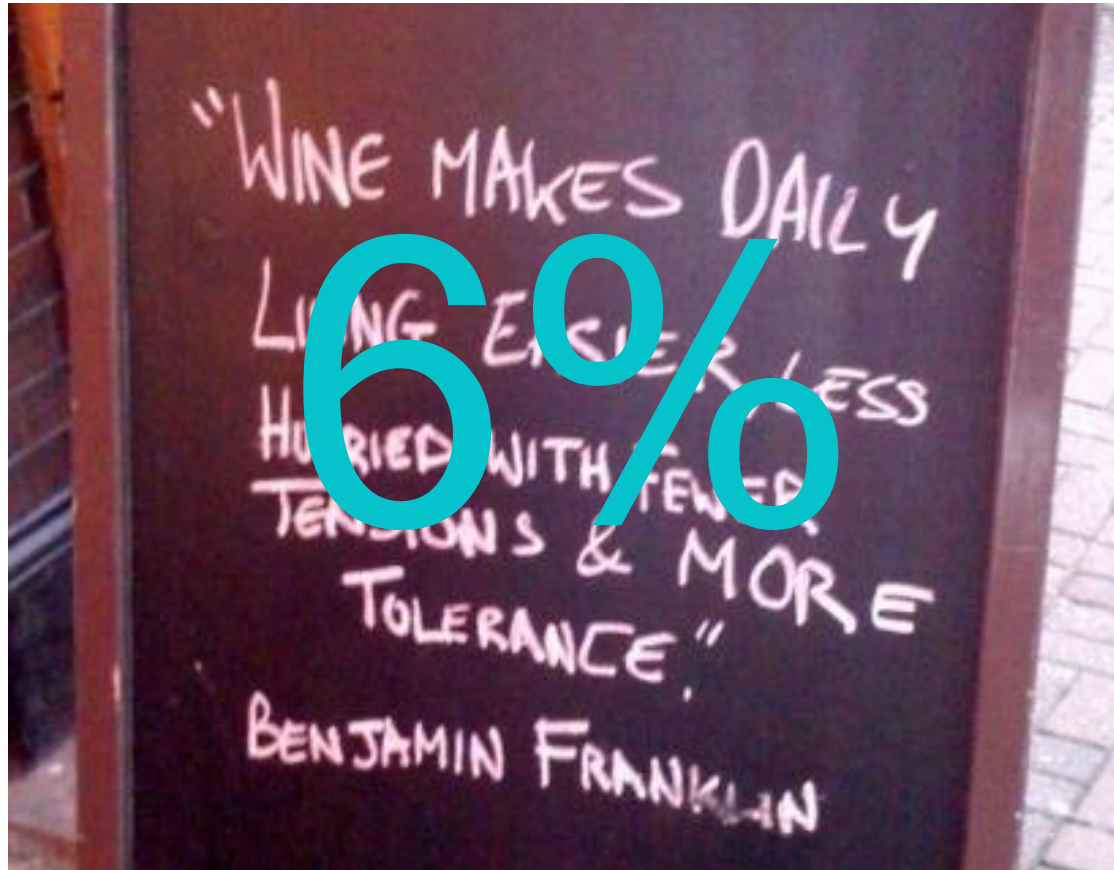 "WINE MAKES DAILY
LIVING EASIER LESS
HURIED WITH FEWER
TENSIONS & MORE
TOLERANCE."
BENJAMIN FRANKLIN
6%